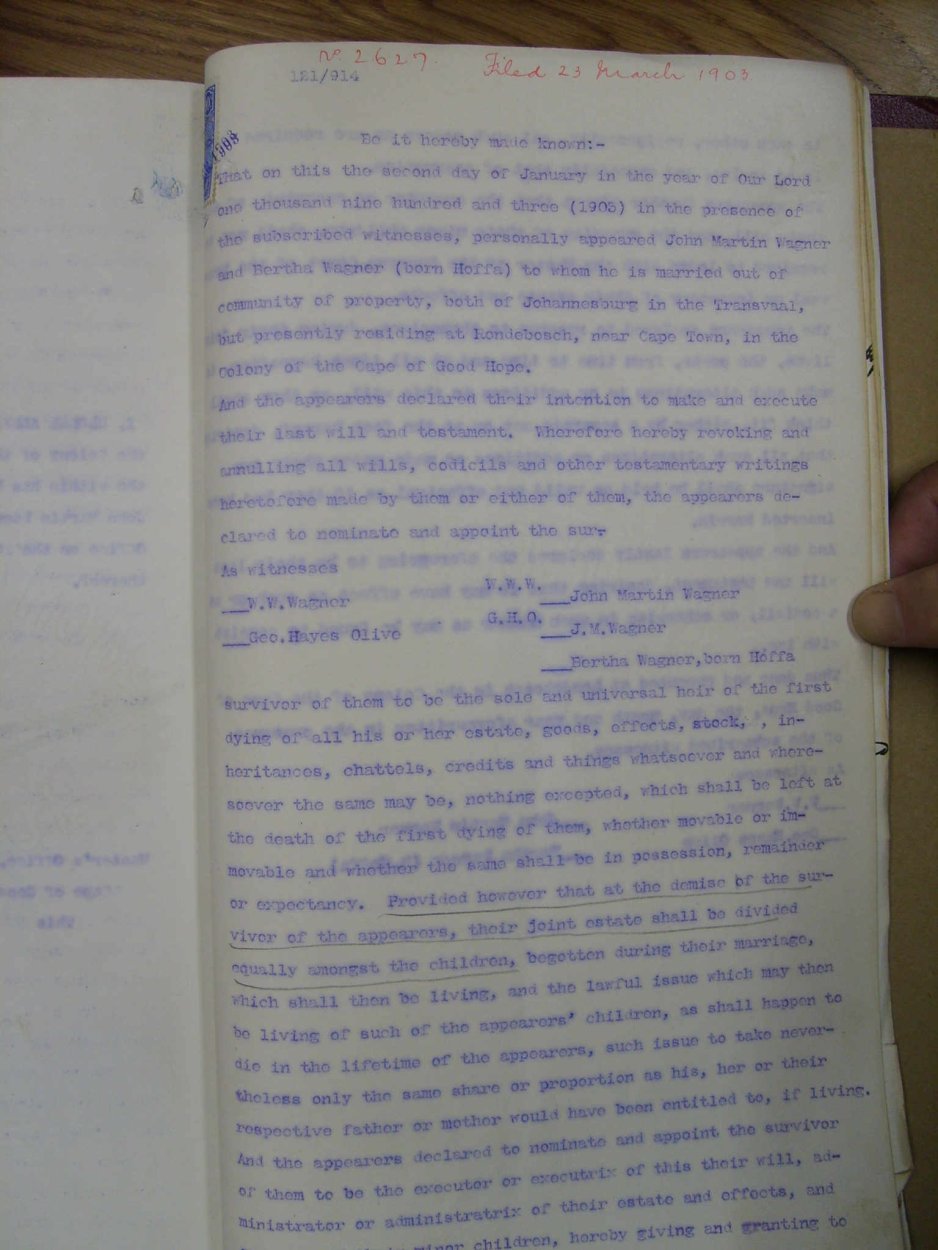 No. 2627. Filed 23 March 1903
121/914
Be it hereby made known:-
That on this the second day of January in the year of Our Lord
one thousand nine hundred and three (1903) in the presence of
the subscribed witnesses, personally appeared John Martin Wagner
and Bertha Wagner (born Hoffa) to whom he is married out of
community of property, both of Johannesburg in the Transvaal,
but presently residing at Rondebosch, near Cape Town, in the
Colony of the Cape of Good Hope.
And the appearers declared their intention to make and execute
their last will and testament. Wherefore hereby revoking and
annulling all wills, codicils and other testamentary writings
heretofore made by them or either of them, the appearers de-
clared to nominate and appoint the sur-
As witnesses
W.W.W.
___W.W.Wagner ___John Martin Wagner
G.H.O.
___Geo.Hayes Olive ___J.M.Wagner
___Bertha Wagner,born Hoffa
survivor of them to be the sole and universal heir of the first
dying of all his or her estate, goods, effects, stock, , in-
heritances, chattels, credits and things whatsoever and where-
soever the same may be, nothing excepted, which shall be left at
the death of the first dying of them, whether movable or im-
movable and whether the same shall be in possession, remainder
or expectancy. Provided however that at the demise of the sur-
vivor of the appearers, their joint estate shall be divided
equally amongst the children, begotten during their marriage,
which shall then be living, and the lawful issue which may then
be living of such of the appearers' children, as shall happen to
die in the lifetime of the appearers, such issue to take never-
theless only the same share or proportion as his, her or their
respective father or mother would have been entitled to, if living.
And the appearers declared to nominate and appoint the survivor
of them to be the executor or executrix of this their will, ad-
ministrator or administratrix of their estate and effects, and
minor children, hereby giving and granting to